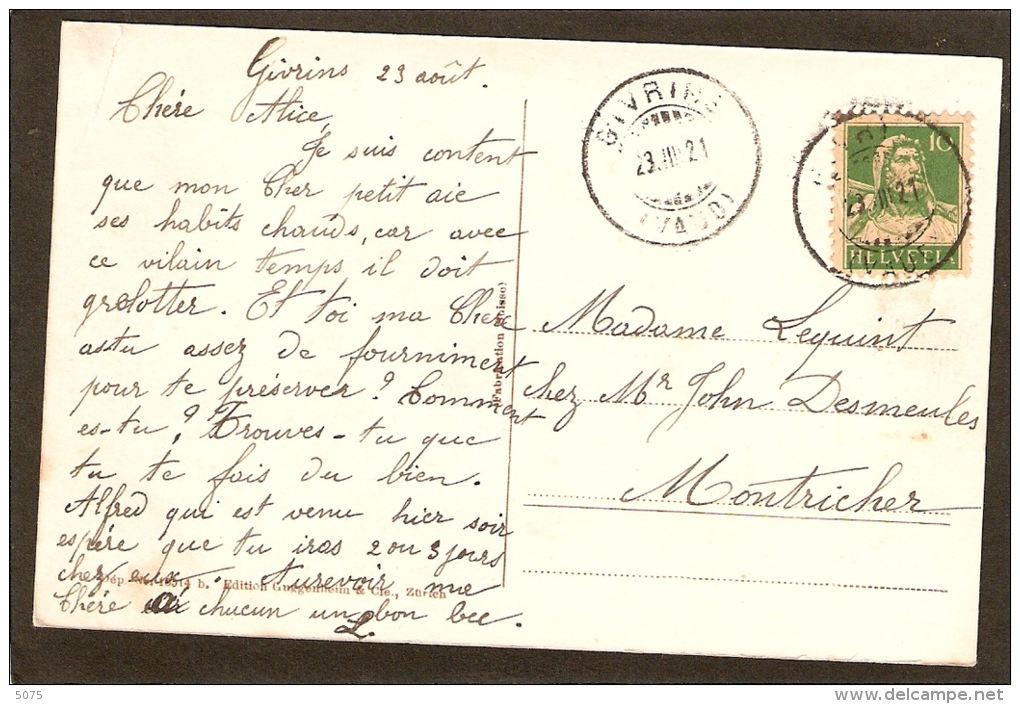 Givrins 23 août.
Chère Alice,
Je suis content
que mon Cher petit aie
ses habits chauds, car avec
ce vilain temps il doit
grelotter. Et toi ma Chère
as-tu assez de fourniment
pour te préserver? Comment
es-tu? Trouves-tu que
tu te fais du bien.
Alfred qui est venu hier soir
espère que tu iras 2 ou 3 jours
chez eux. Aurevoir me
Chère à chucun un bon bec.
L.
Dép. No. 10514 b. Edition Guggenheim & Cie., Zürich
(Fabrication Suisse)
GIVRINS
23.III.21
(VAUD)
10
HELVETIA
23.III.21
(VAUD)
Madame Lequint
chez Mr John Desmeules
Montricher
5075
http://www.delcampe.net